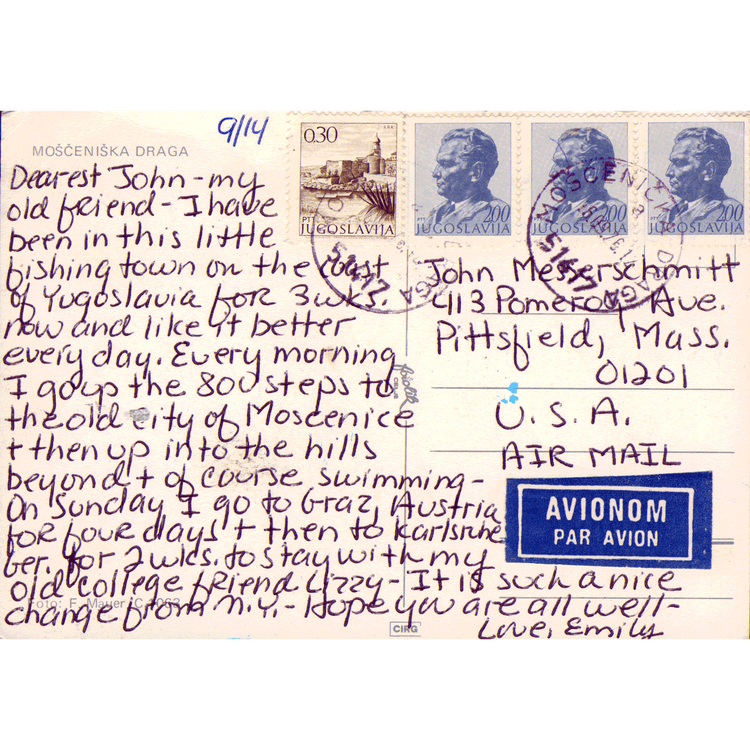 9/14
MOŠČENIŠKA DRAGA
0.30
PTT
JUGOSLAVIJA
PTT 2.00
JUGOSLAVIJA
PTT 2.00
JUGOSLAVIJA
PTT 2.00
JUGOSLAVIJA
51417
DRAGA
MOŠĆENIČKA DRAGA
51417
Dearest John - my
old friend - I have
been in this little
fishing town on the coast
of Yugoslavia for 3 wks.
now and like it better
every day. Every morning
I go up the 800 steps to
the old city of Moscenice
+ then up into the hills
beyond + of course swimming -
On Sunday I go to Graz, Austria
for four days + then to Karlsruhe
Ger. for 2 wks. to stay with my
old college friend Lizzy - It is such a nice
change from N.Y. - Hope you are all well -
Love, Emily
John Messerschmitt
413 Pomeroy Ave.
Pittsfield, Mass.
01201
U.S.A.
AIR MAIL
AVIONOM
PAR AVION
Foto: F. Mayer
CIRG